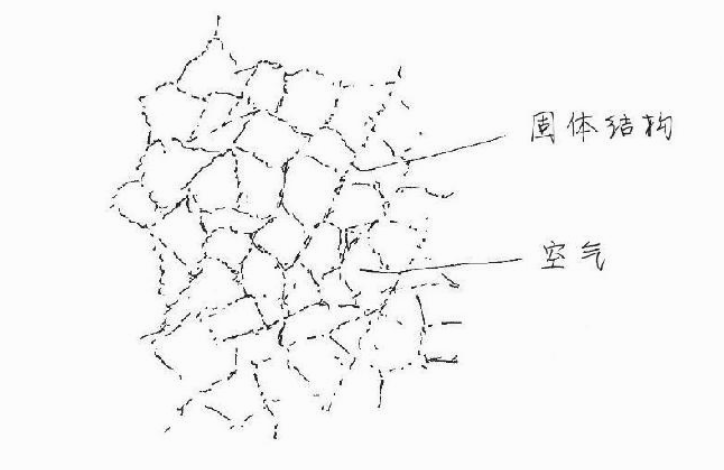 固体结构
空气